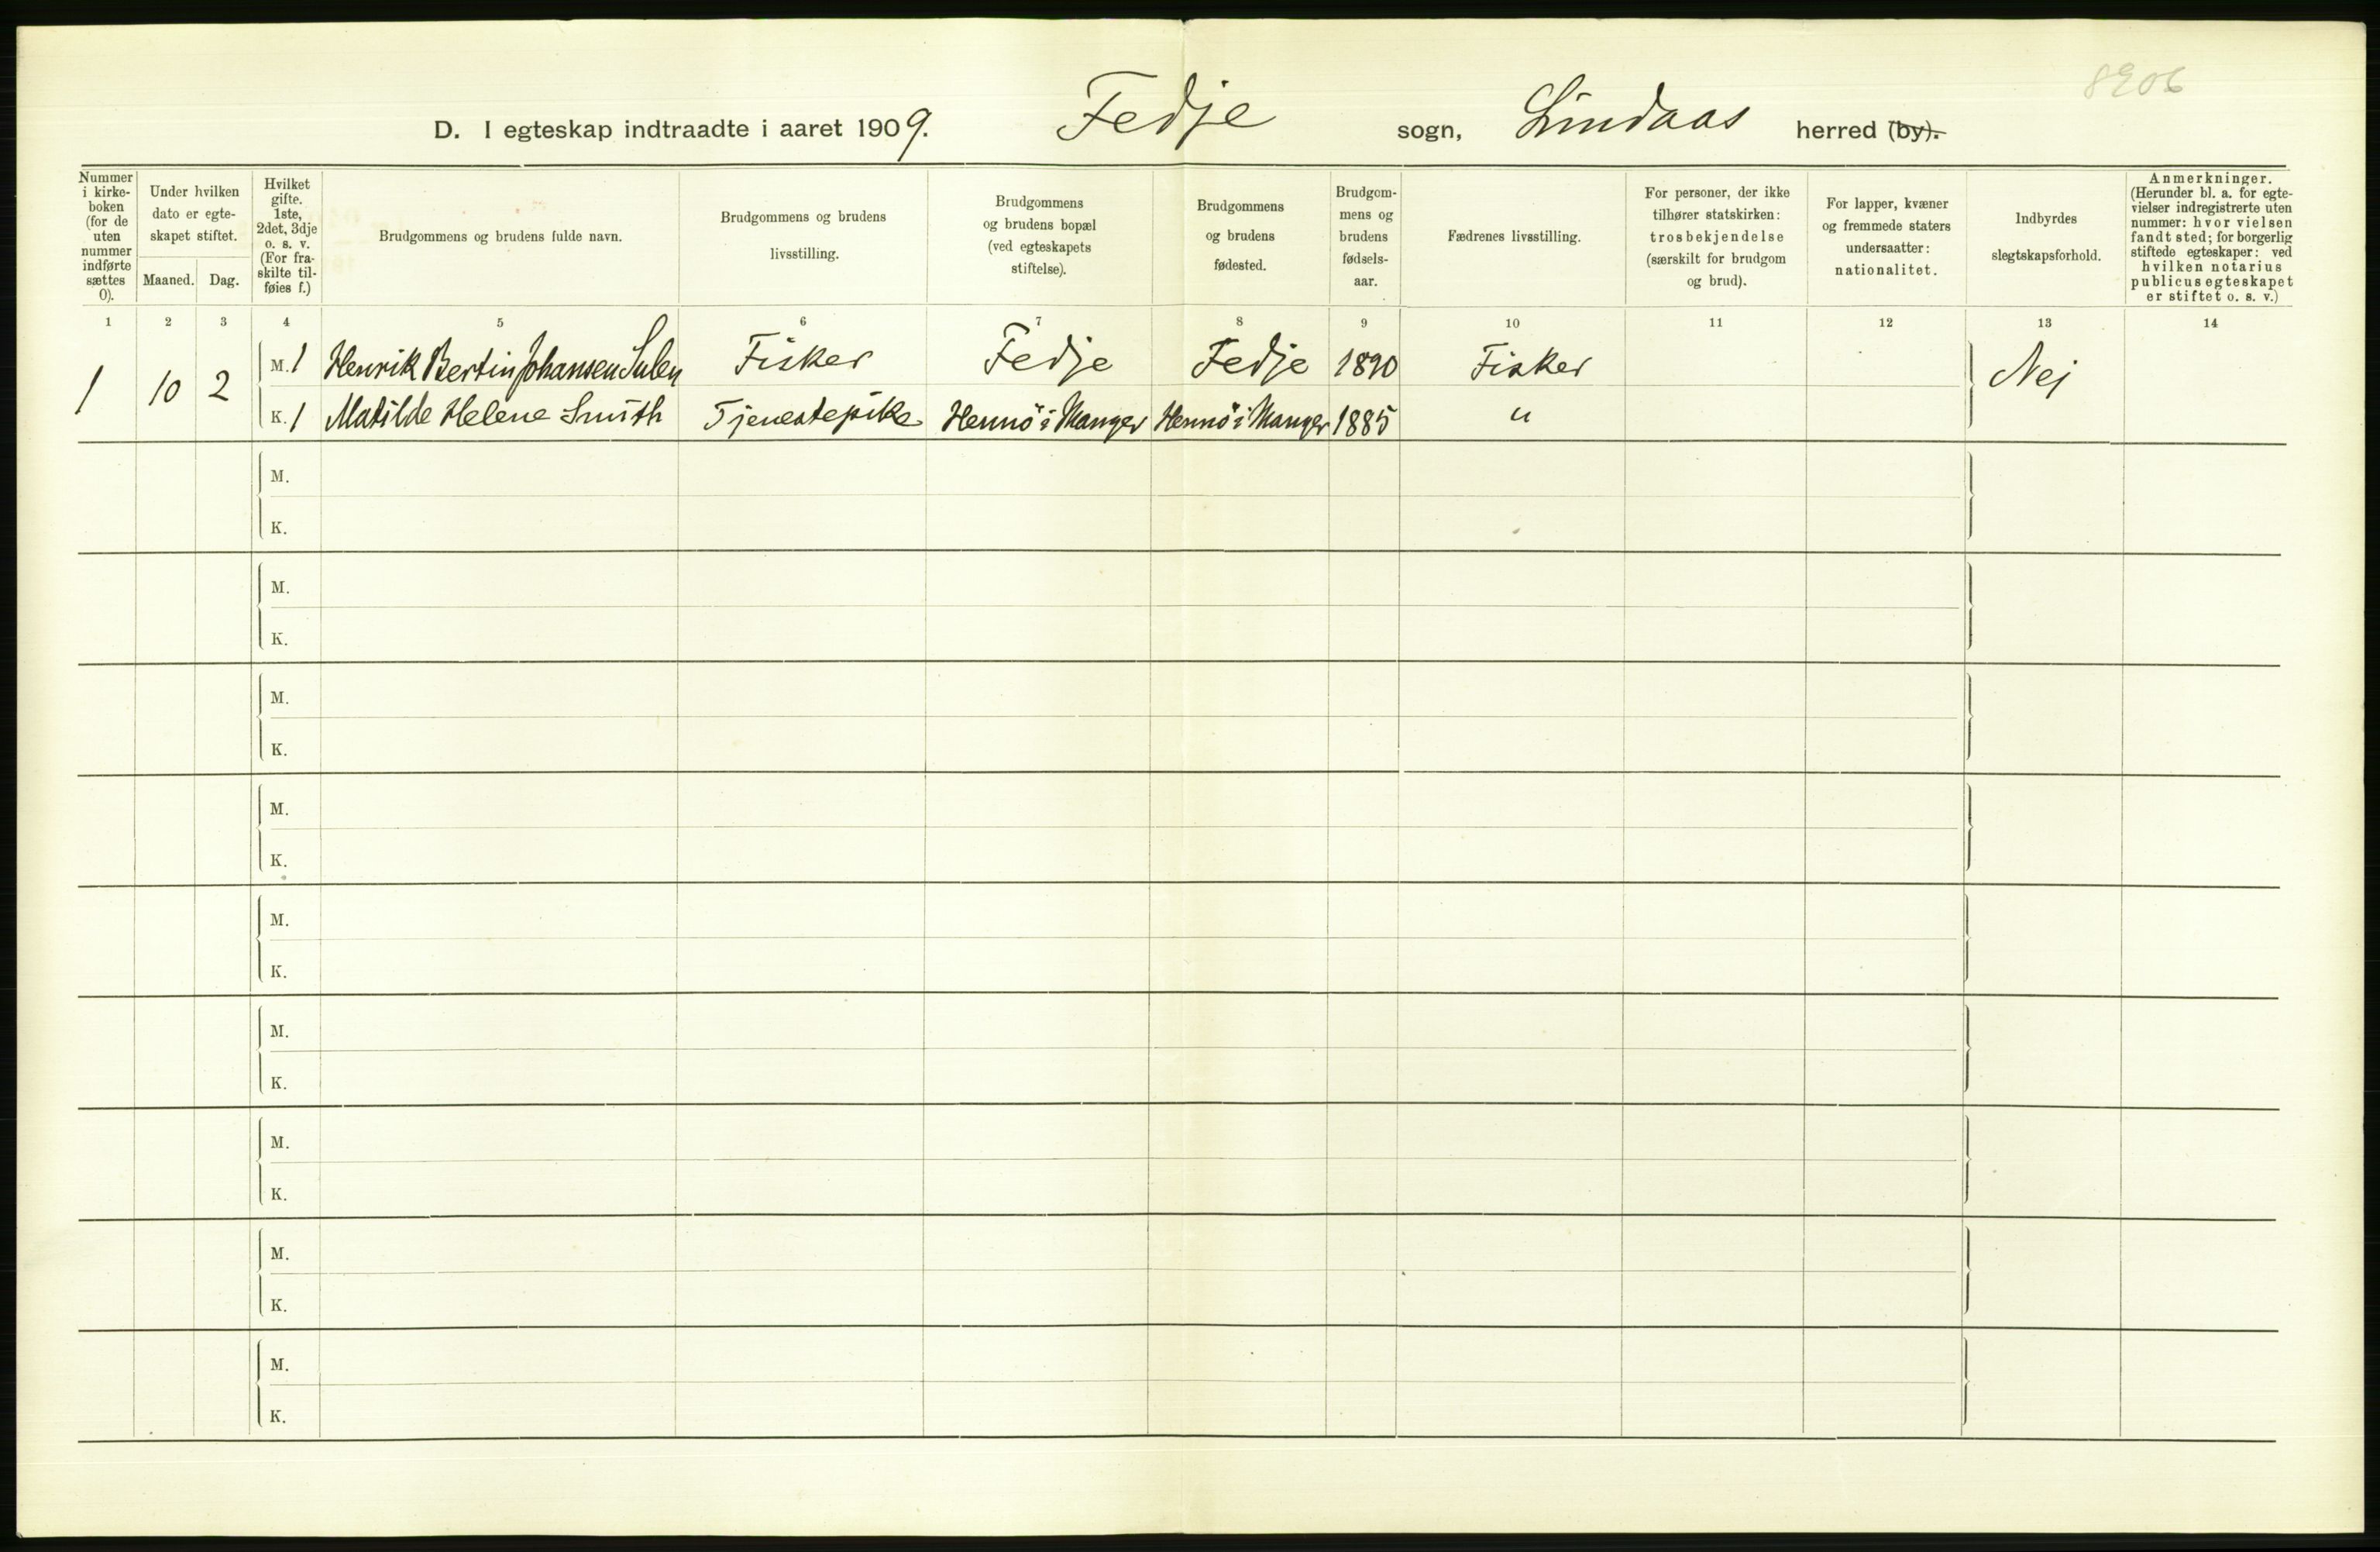 8906
D. I egteskap indtraadte i aaret 1909. Fedje sogn, Lindaas herred (by).
Nummer i kirkeboken (for de uten nummer indførte sættes 0).
Under hvilken dato er egteskapet stiftet.
Maaned. Dag.
Hvilket gifte. 1ste, 2det, 3dje o. s. v. (For fraskilte tilføies f.)
Brudgommens og brudens fulde navn.
Brudgommens og brudens livsstilling.
Brudgommens og brudens bopæl (ved egteskapets stiftelse).
Brudgommens og brudens fødested.
Brudgommens og brudens fødselsaar.
Fædrenes livsstilling.
For personer, der ikke tilhører statskirken: trosbekjendelse (særskilt for brudgom og brud).
For lapper, kvæner og fremmede staters undersaatter: nationalitet.
Indbyrdes slegtskapsforhold.
Anmerkninger. (Herunder bl. a. for egtevielser indregistrerte uten nummer: hvor vielsen fandt sted; for borgerlig stiftede egteskaper: ved hvilken notarius publicus egteskapet er stiftet o. s. v.)
1 2 3 4 5 6 7 8 9 10 11 12 13 14
1 10 2 M. 1 Henrik Bertin Johansen Sulen Fisker Fedje Fedje 1890 Fisker Nej
K. 1 Matilde Helene Smith Tjenestepike Hennö i Manger Hennö i Manger 1885 "
M.
K.
M.
K.
M.
K.
M.
K.
M.
K.
M.
K.
M.
K.
M.
K.
M.
K.